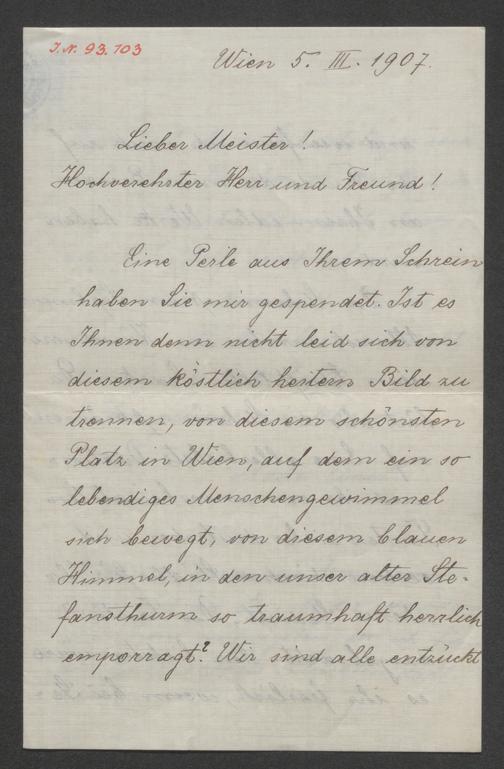 J.N. 93.703
Wien 5. III. 1907.
Lieber Meister!
Hochverehrter Herr und Freund!
Eine Perle aus Ihrem Schrein
haben Sie mir gespendet. Ist es
Ihnen denn nicht leid sich von
diesem köstlich heitern Bild zu
trennen, von diesem schönsten
Platz in Wien, auf dem ein so
lebendiges Menschengewimmel
sich bewegt, von diesem blauen
Himmel, in den unser alter Ste-
fansthurm so traumhaft herrlich
emporragt? Wir sind alle entzückt